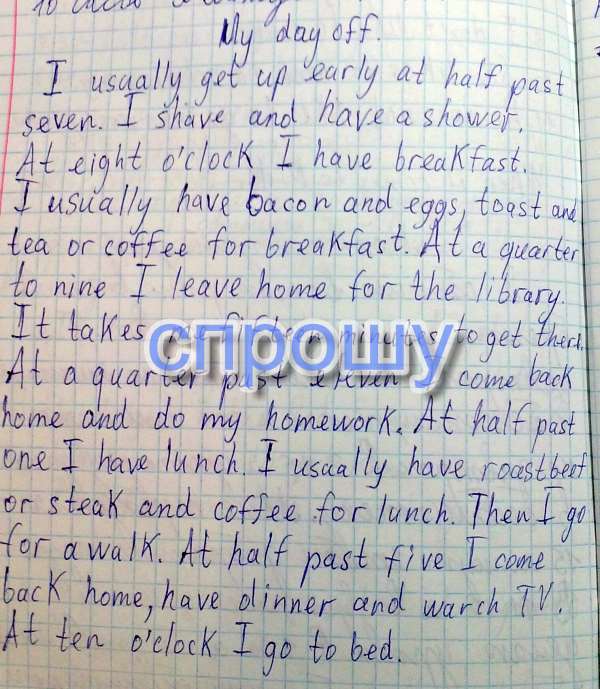 My day off.
I usually get up early at half past
seven. I shave and have a shower.
At eight o'clock I have breakfast.
I usually have bacon and eggs, toast and
tea or coffee for breakfast. At a quarter
to nine I leave home for the library.
It takes me fifteen minutes to get there.
спрошу
At a quarter past eleven I come back
home and do my homework. At half past
one I have lunch. I usually have roastbeef
or steak and coffee for lunch. Then I go
for a walk. At half past five I come
back home, have dinner and warch TV.
At ten o'clock I go to bed.